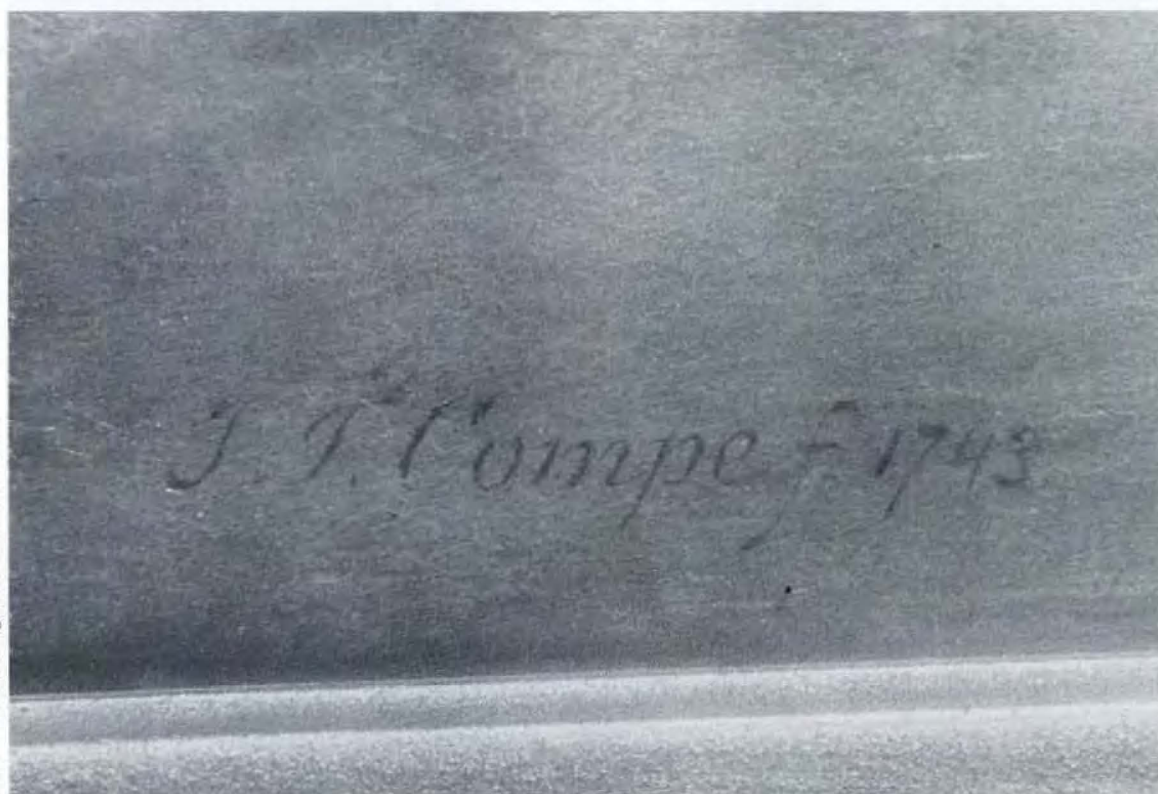 J. T. Compe f 1743